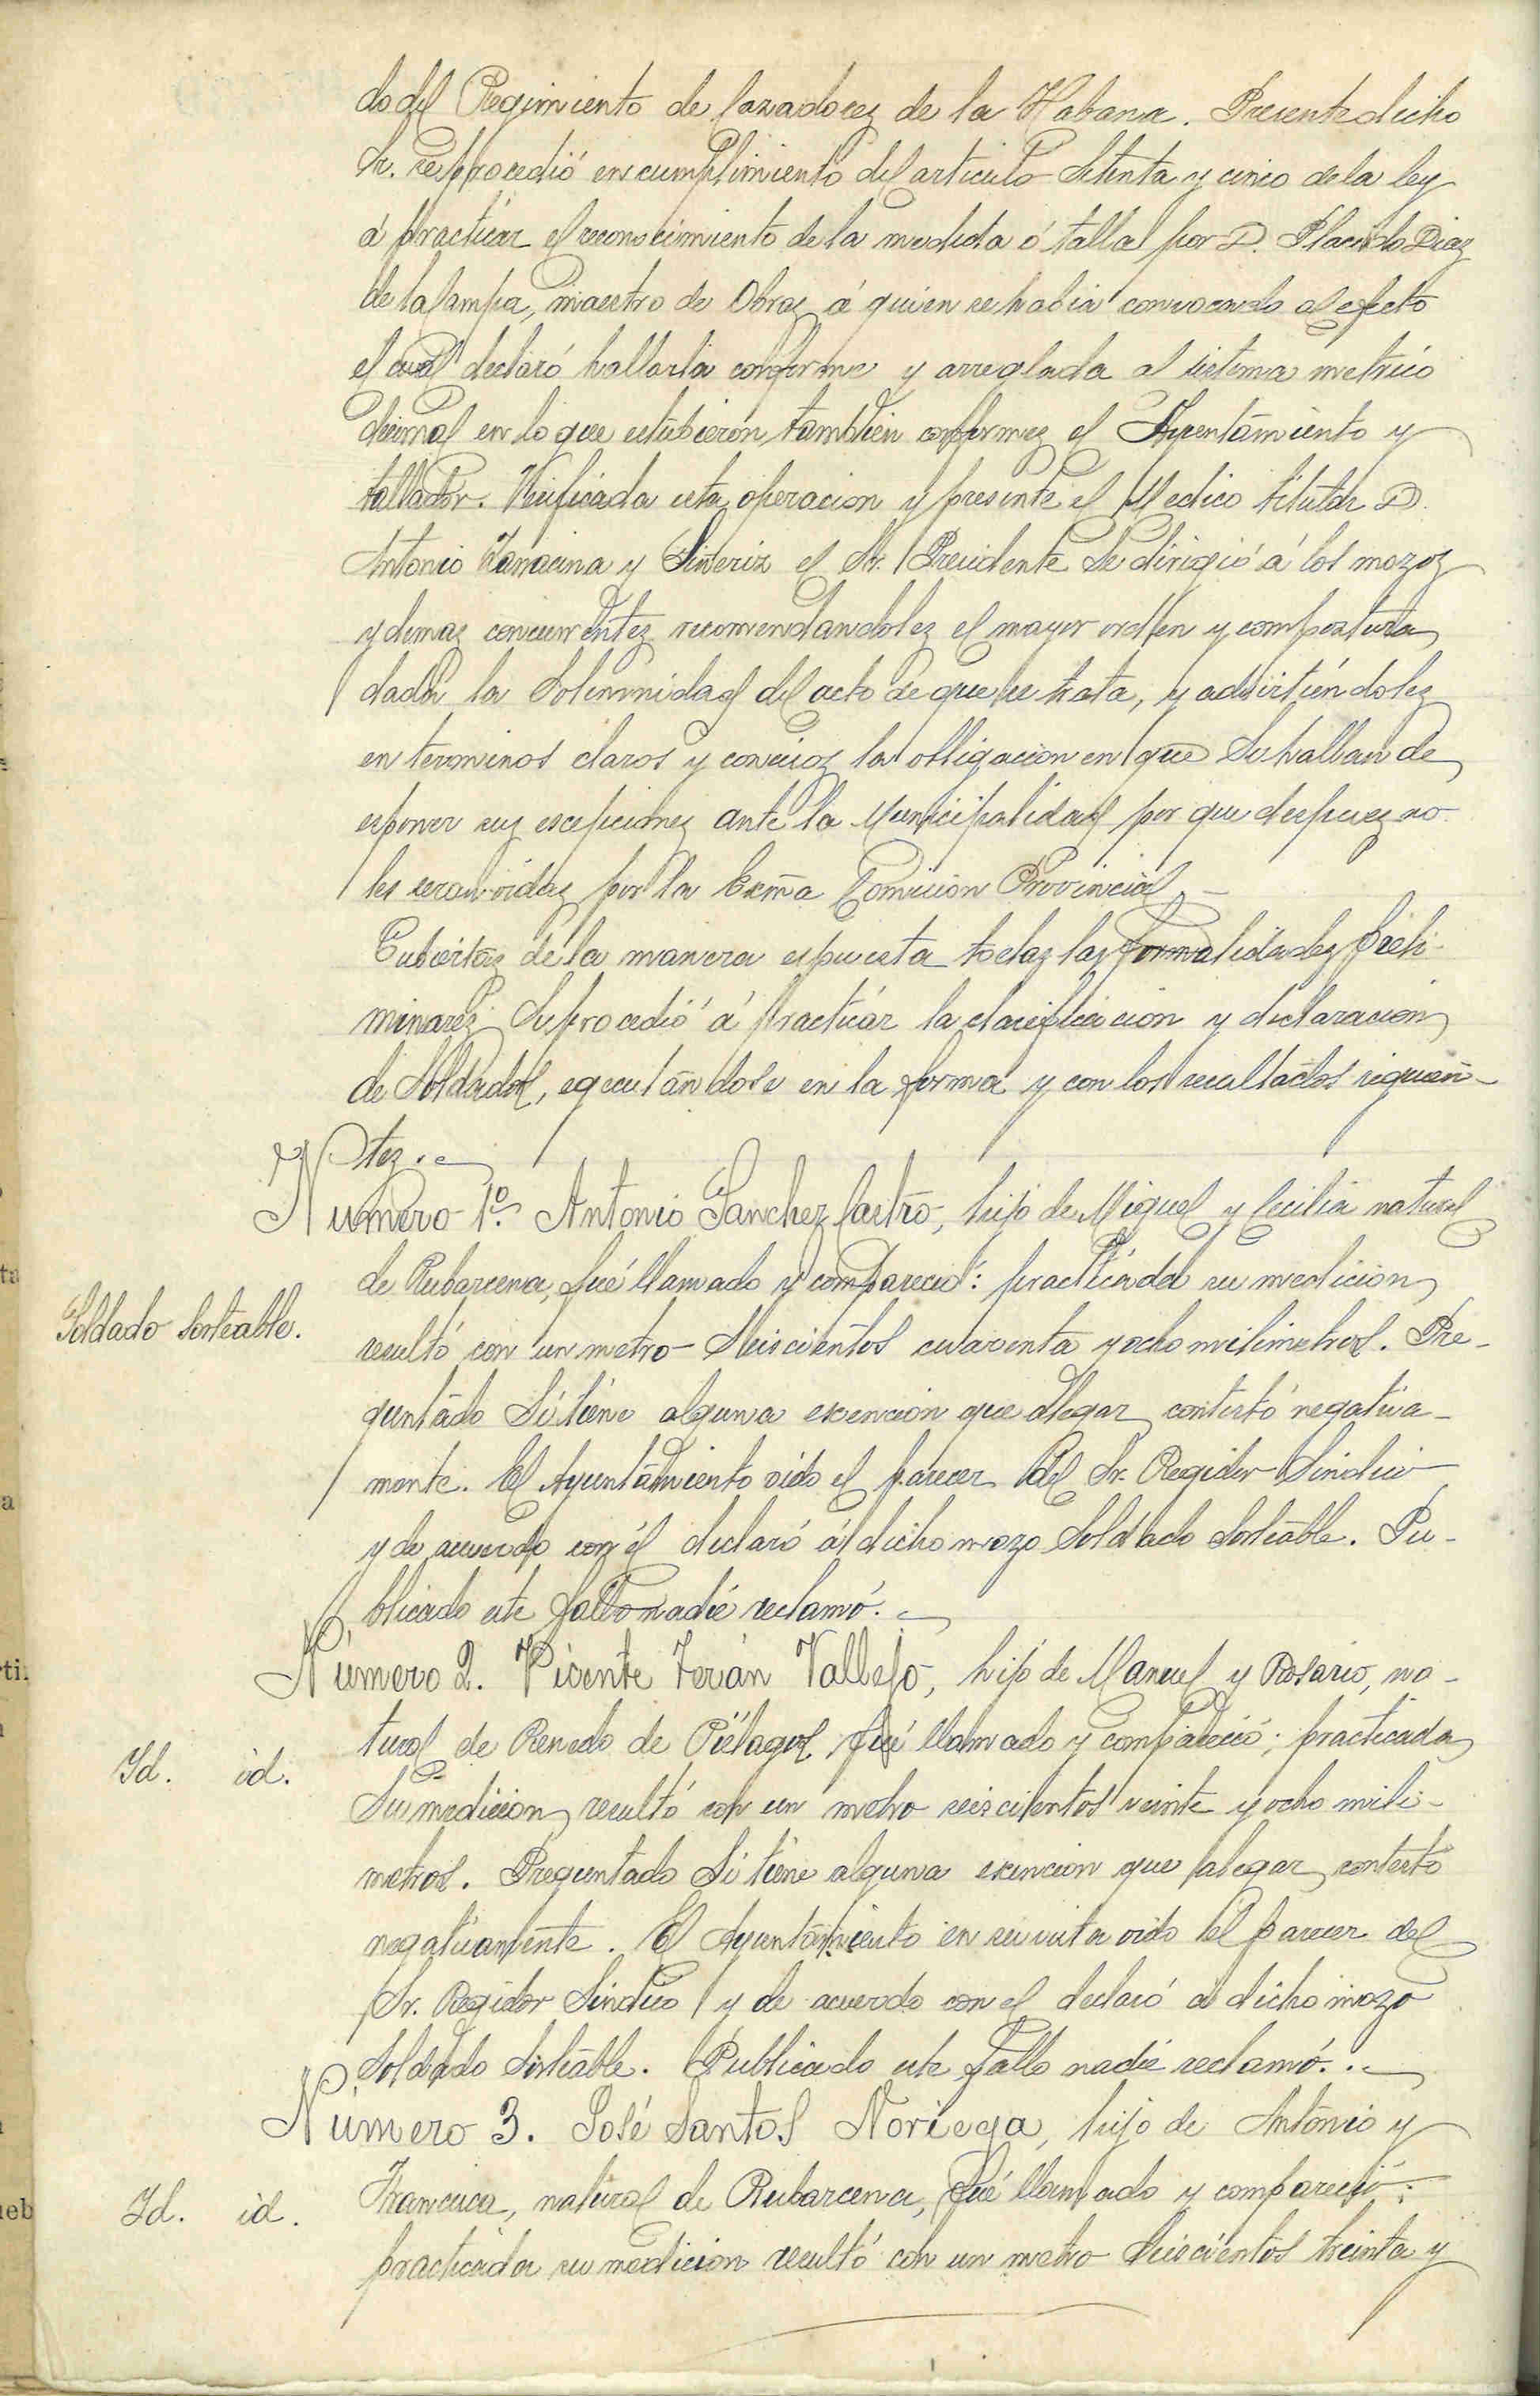 do del Regimiento de Cazadorez de la Habana. Presente dicho
Sr. se procedió en cumplimiento del articulo Setenta y cinco de la ley
á practicar el reconocimiento de la medida ó talla por D. Placido Diaz
de la Campa, maestro de Obraz á quien se habia convocado al efecto
el cual declaró hallarla conforme y arreglada al sistema metrico
decimal en lo que estubieron tambien conformez el Ayuntamiento y
tallador. Verificada esta operacion y presente el Medico titular D.
Antonio y Siñeriz el Sr. Presidente se dirigió á los mozoz
y demaz concurrentez recomendandolez el mayor orden y compostura
dada la Solemnidad del acto de que se trata, y advirtiéndolez
en terminos claros y concisoz la obligacion en que Se hallan de
esponer suz escepcionez ante la Municipalidad por que despuez no
les seran oidaz por la Exmã Comision Provincial. —
Cubiertaz de la manera espuesta todaz laz formalidadez preli-
minarez Se procedió á practicár la clasificacion y declaracion
de Soldados, egecutandose en la forma y con los resultados siguien-
tez.
Número 1º. Antonio Sanchez Castro, hijo de Miguel y Cecilia natural
de Rubarcena, fué llamado y compareció: practicada su medicion
Soldado Sorteable.
resultó con un metro Seiscientos cuarenta y ocho milimetros. Pre-
guntado Si tiene alguna esencion que alegar contestó negativa-
mente. El Ayuntamiento oido el parecer del Sr. Regidor Sindico
y de acuerdo con él declaró á dicho mozo Soldado Sorteable. Pu-
blicado este fallo nadie reclamó.
Número 2. Vicente Terán Vallejo, hijo de Manuel y Rosario, na-
tural de Renedo de Piélagos fué llamado y compareció; practicada
Id. id.
Su medicion resultó con un metro seiscientos veinte y ocho mili-
metros. Preguntado Si tiene alguna exencion que alegar contestó
negativamente. El Ayuntamiento en su vista oido el parecer del
Sr. Regidor Sindico y de acuerdo con el declaró a dicho mozo
Soldado Sorteable. Publicado este fallo nadie reclamó..
Número 3. José Santos Noriega, hijo de Antonio y
Francisca, natural de Rubarcena, fué llamado y compareció;
Id. id.
practicada su medicion resultó con un metro Seiscientos treinta y